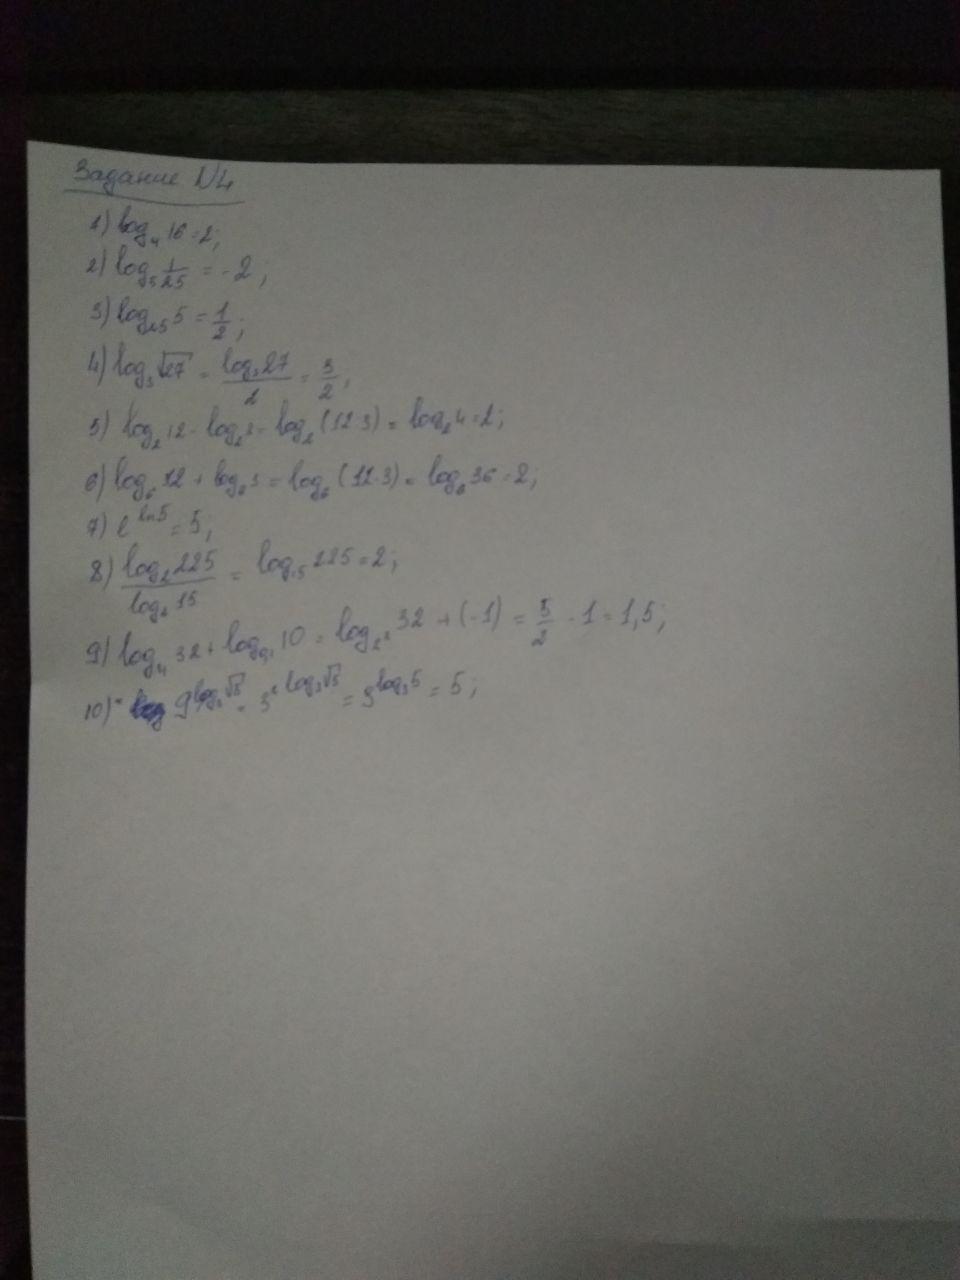 Задание N4
1) log₄ 16 = 2;
2) log₅ 1/25 = -2;
3) log₂₅ 5 = 1/2;
4) log₃ √27 = log₃ 27 / 2 = 3/2;
5) log₂ 12 - log₂ 3 = log₂ (12 : 3) = log₂ 4 = 2;
6) log₆ 12 + log₆ 3 = log₆ (12 · 3) = log₆ 36 = 2;
7) e^ln5 = 5;
8) log₂ 225 / log₂ 15 = log₁₅ 225 = 2;
9) log₄ 32 + log₀,₁ 10 = log₂² 32 + (-1) = 5/2 - 1 = 1,5;
10) 9^log₃√5 = 3^2 log₃√5 = 3^log₃5 = 5;